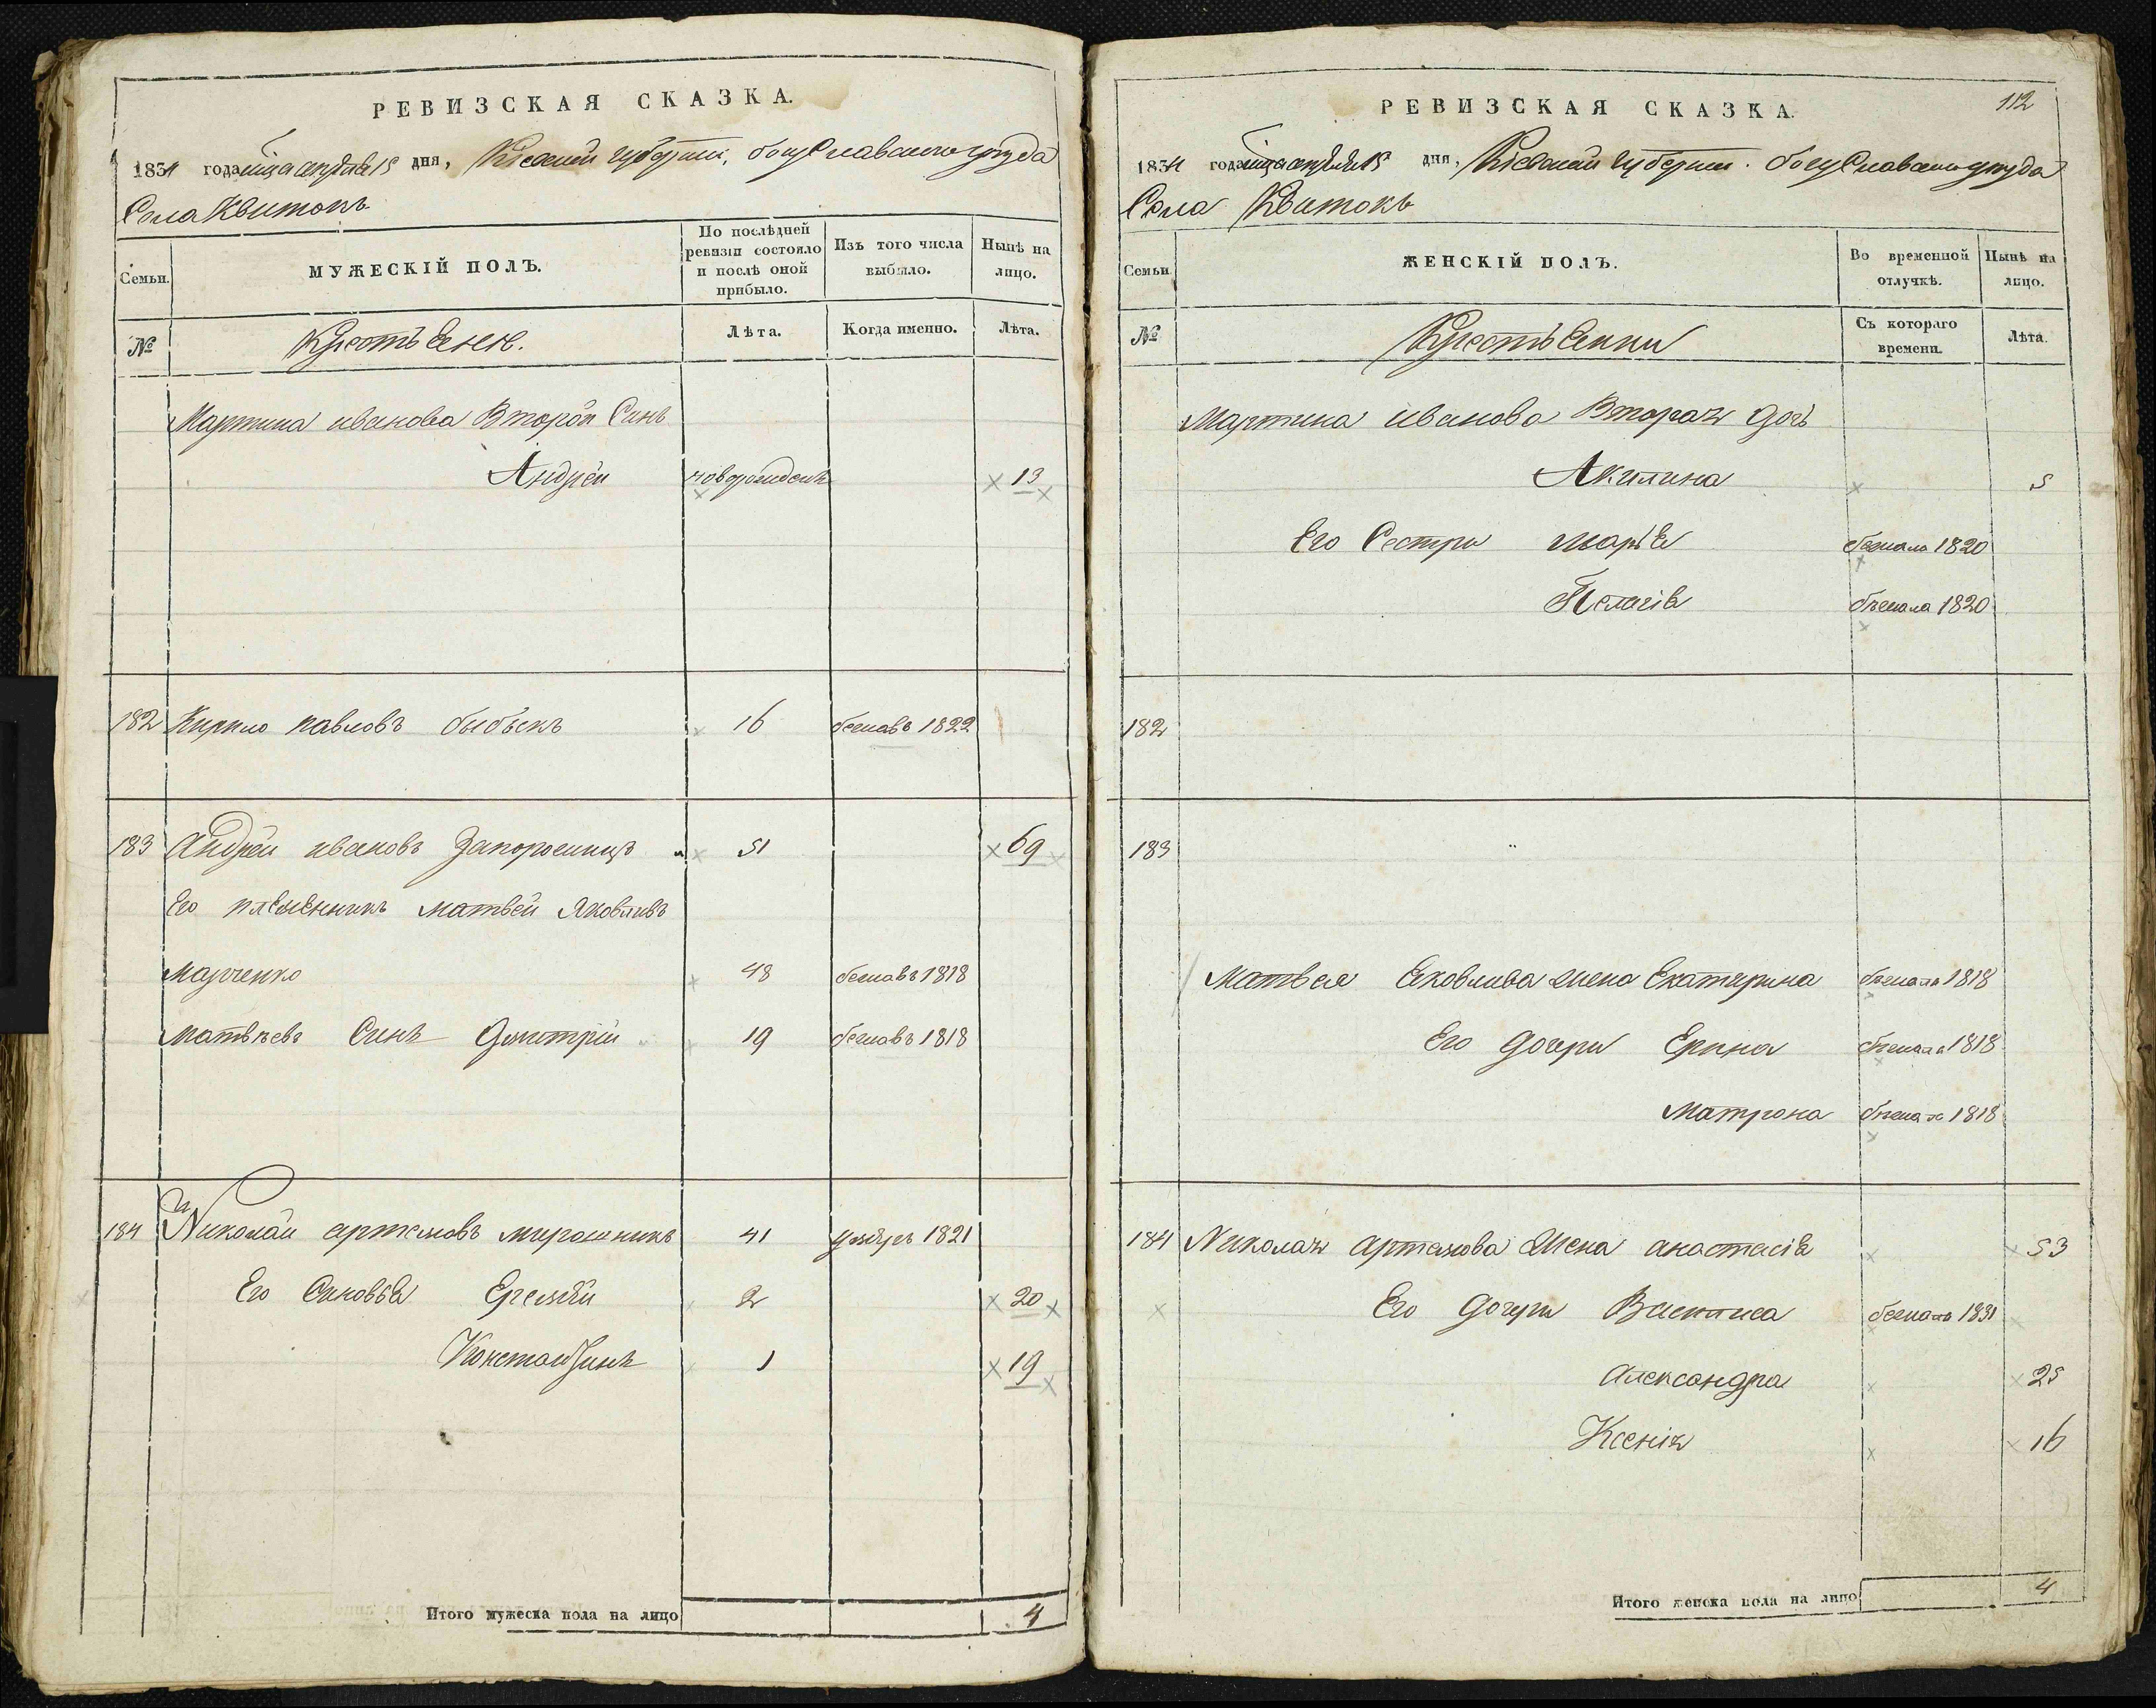 РЕВИЗСКАЯ СКАЗКА.
1834 года мца апреля 15 дня, Кіевской губерніи, богуславского уезда
Села Квитокъ
Семьи.
МУЖЕСКІЙ ПОЛЪ.
По послѣдней ревизіи состояло и послѣ оной прибыло.
Изъ того числа выбыло.
Нынѣ на лицо.
№
Крестьяне.
Лѣта.
Когда именно.
Лѣта.
Мартина иванова Второй Синъ
Андрей новорожденъ 13
182 Кирило павловъ 16 бежавъ 1822
183 Андрей ивановъ Запорожецъ 51 69
Его племенникъ матвей Яковливъ
Марченко 48 бежавъ 1818
Матвѣевъ Синъ Дмитрій 19 бежавъ 1818
184 Николай артемовъ мирошникъ 41 умеръ 1821
Его Синовья Еремій 2 20
Константинъ 1 19
Итого мужеска пола на лицо 4
РЕВИЗСКАЯ СКАЗКА.
112
1834 года мца апреля 15 дня, Кіевской губерніи. богуславского уезда
Села Квитокъ
Семьи.
ЖЕНСКІЙ ПОЛЪ.
Во временной отлучкѣ.
Нынѣ на лицо.
№
Крестьянки
Съ котораго времени.
Лѣта.
Мартина иванова Вторая дочь
Акилина 5
Его Сестри марія бежала 1820
Пелагія бѣжала 1820
182
183
Матвея Яковлива жена Екатерина бѣжала 1818
Его дочери Ерина бѣжала 1818
Матрона бѣжала 1818
184 Николая артемова жена анастасія 53
Его дочери Васписа бежала 1831
Александра 25
Ксенія 16
Итого женска пола на лицо 4